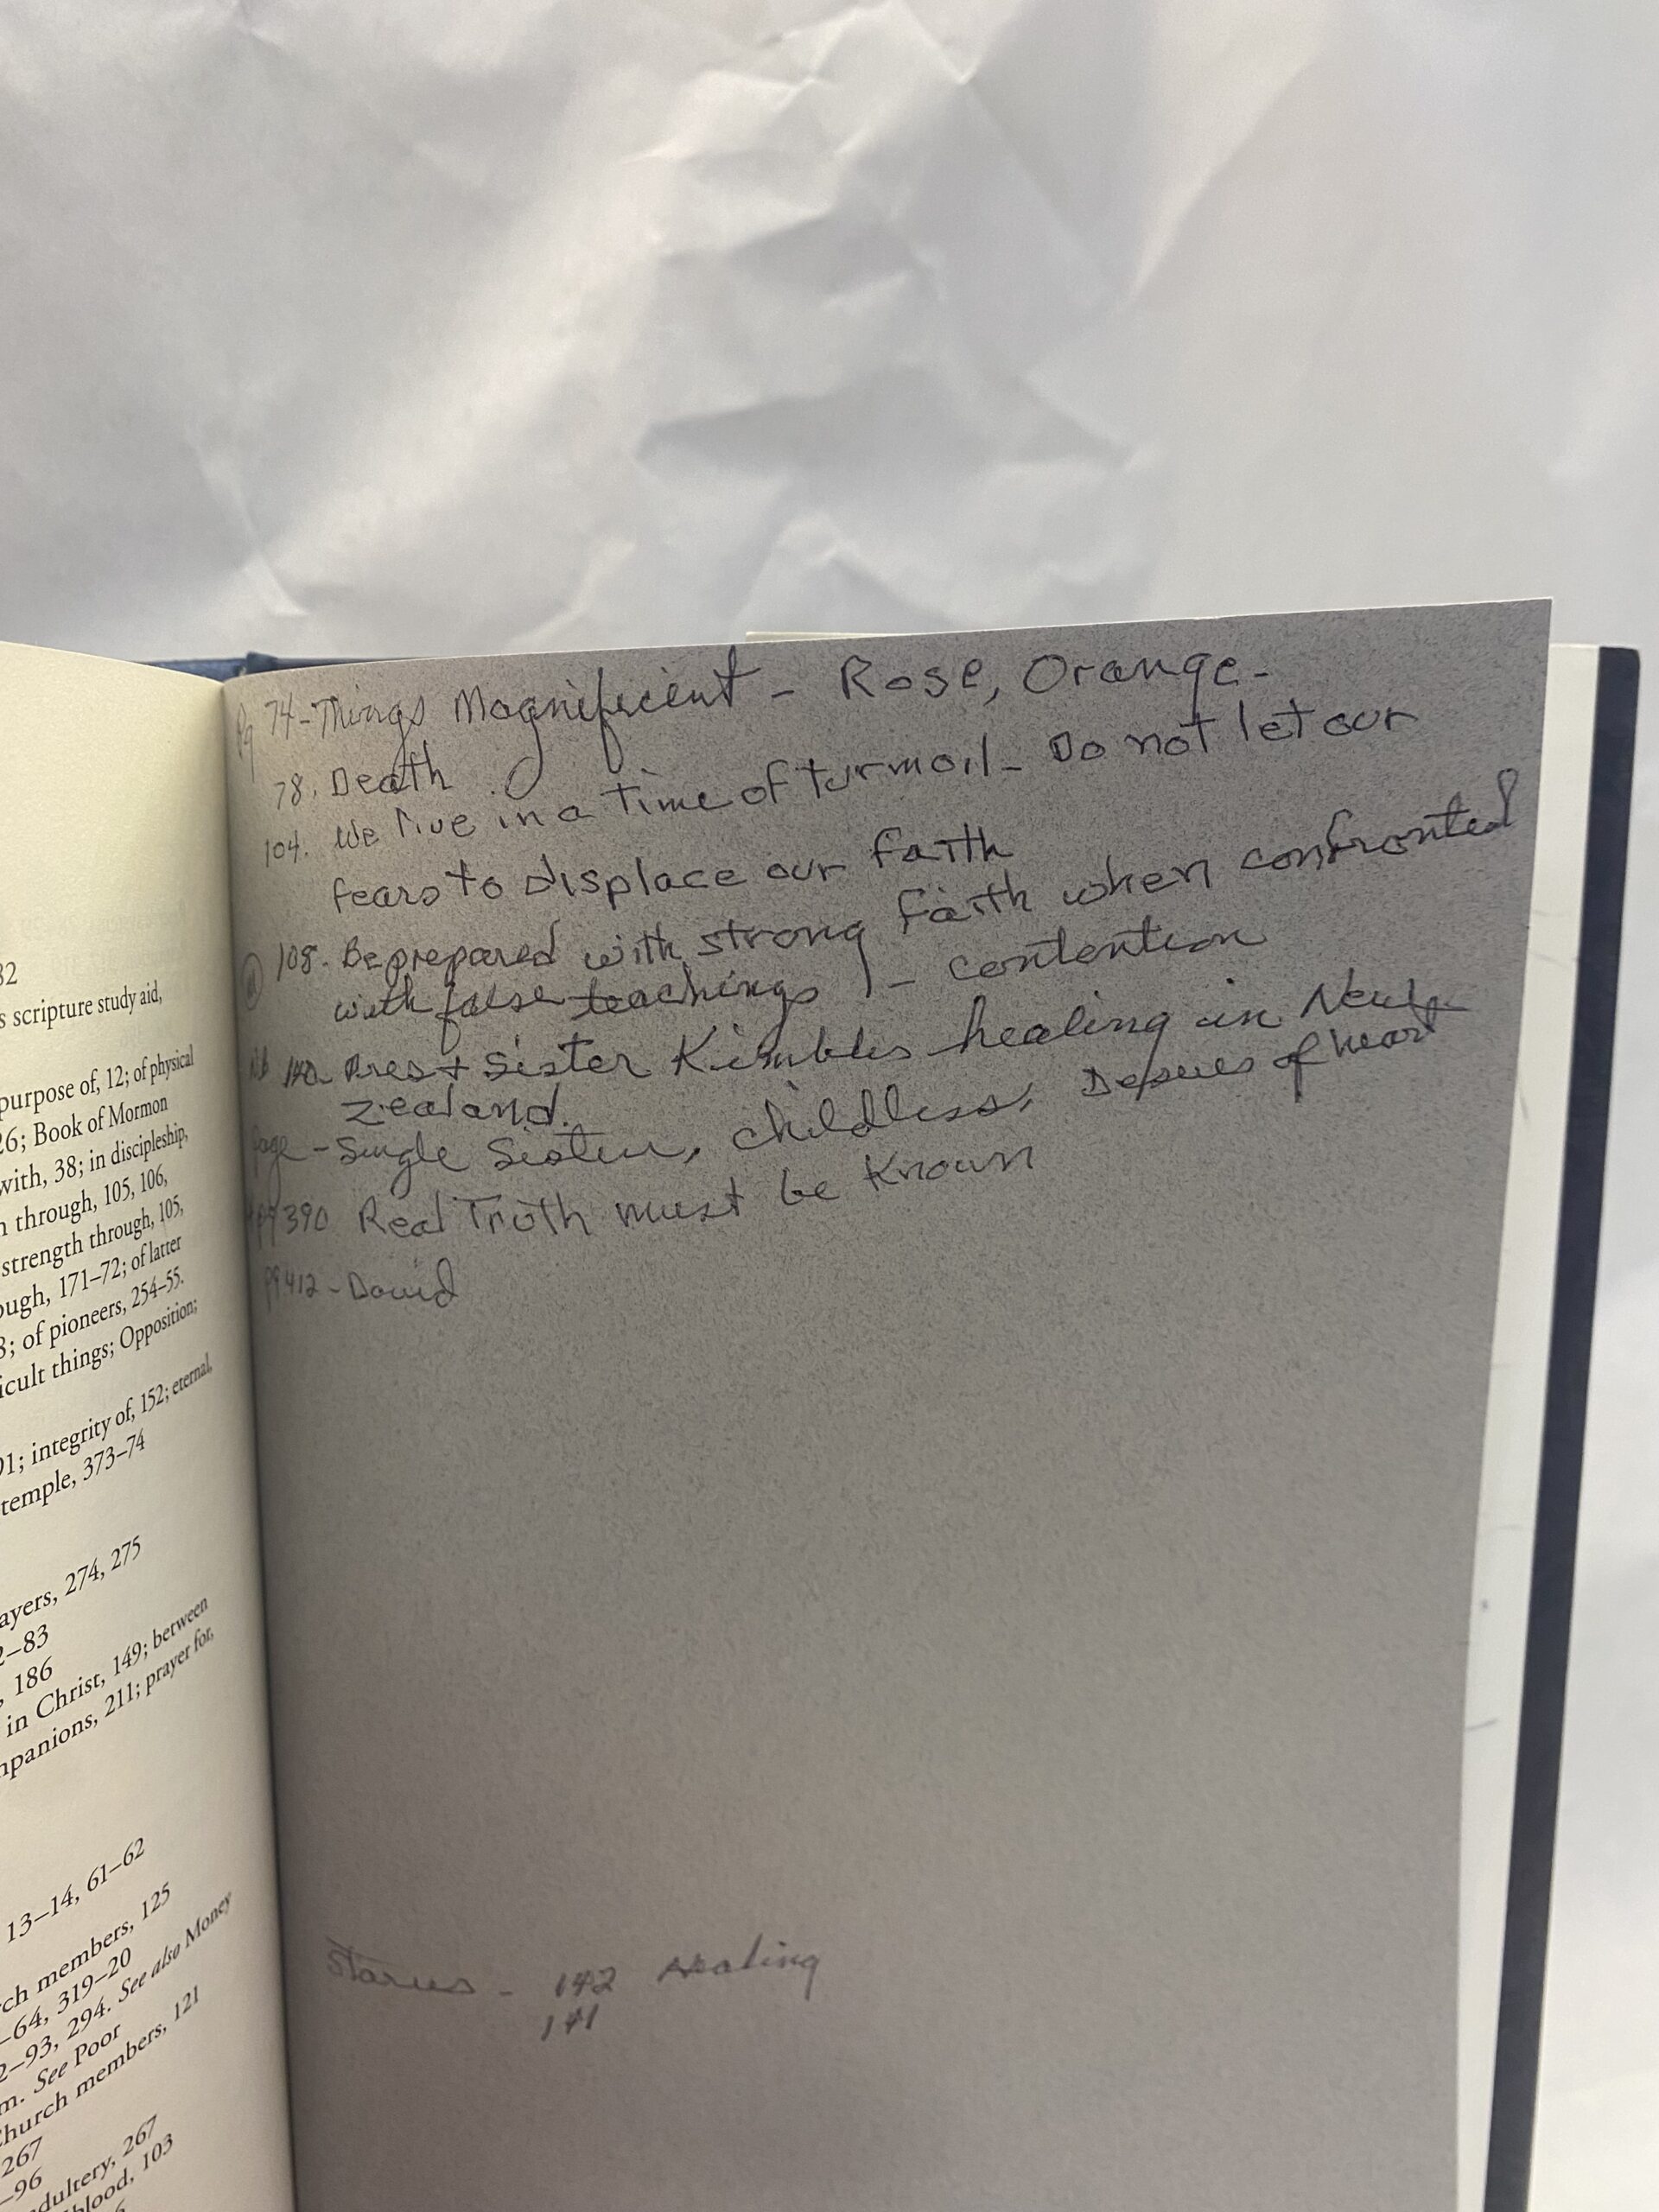 32
s scripture study aid,
purpose of, 12; of physical
26; Book of Mormon
with, 38; in discipleship,
n through, 105, 106,
strength through, 105,
ough, 171–72; of latter
3; of pioneers, 254–55.
icult things; Opposition;
01; integrity of, 152; eternal,
temple, 373–74
ayers, 274, 275
2–83
, 186
in Christ, 149; between
mpanions, 211; prayer for,
13–14, 61–62
rch members, 125
–64, 319–20
2–93, 294. See also Money
m. See Poor
Church members, 121
267
–96
adultery, 267
blood, 103
Pg 74 - Things Magnificent - Rose, Orange -
78. Death
104. We live in a Time of turmoil - Do not let our
fears to displace our faith
108. Be prepared with strong faith when confronted
with false teachings - contention
140. Pres + Sister Kimbles healing in New
Zealand.
page - Single Sister, childless, Desires of heart
pg 390 Real Truth must be Known
pg 412 - David
Stories - 142 Healing
141